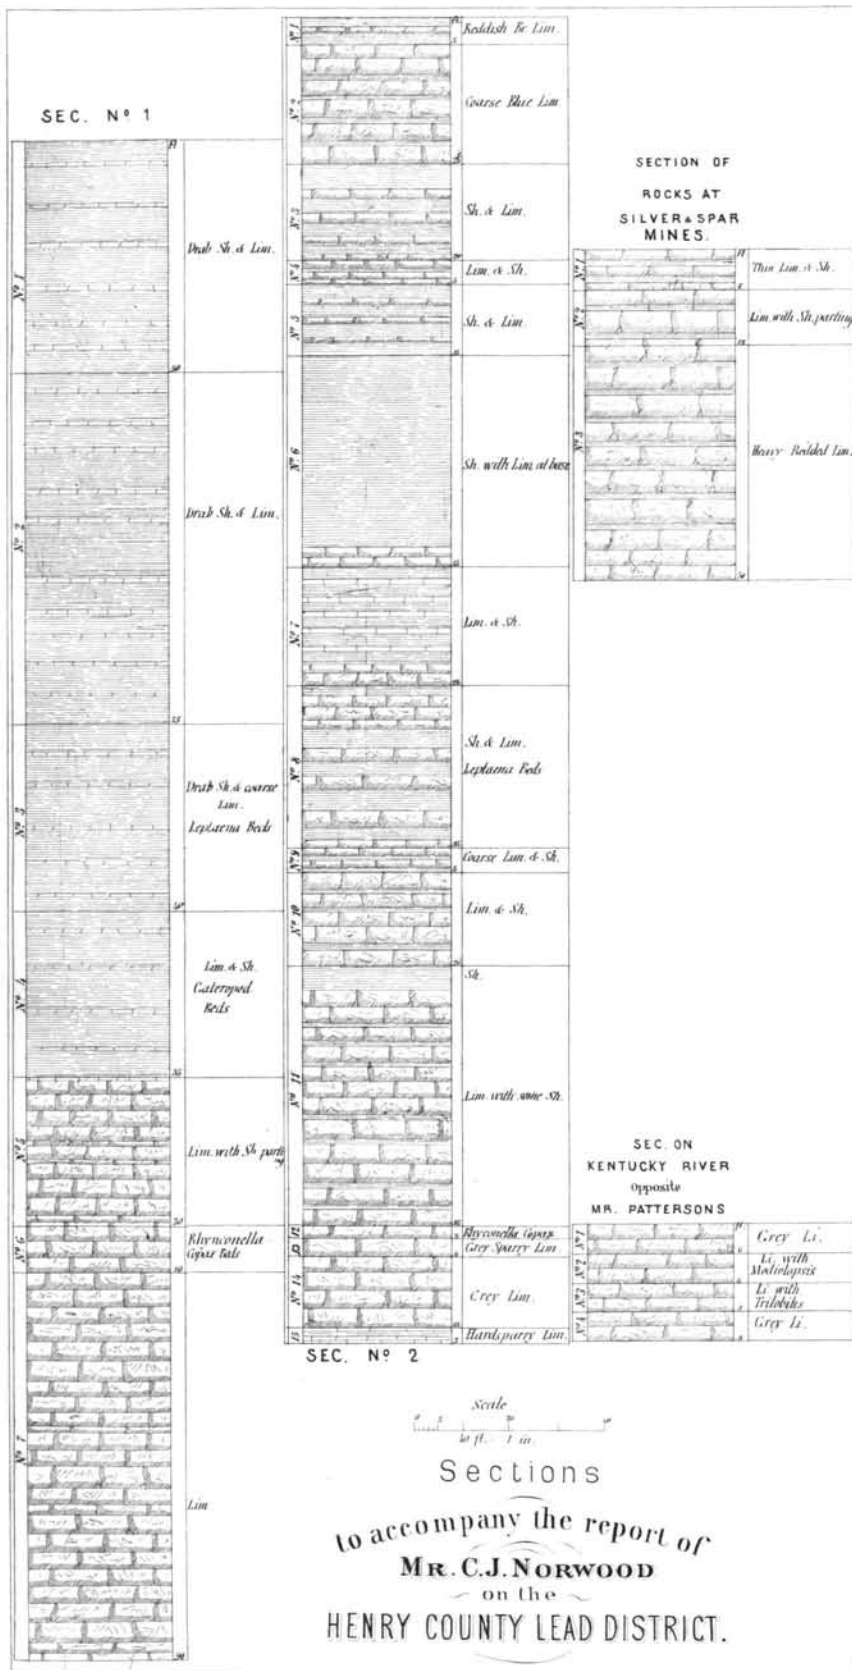 SEC. Nº 1
Nº 1
Drab Sh. & Lim.
Nº 2
Drab Sh. & Lim.
Nº 3
Drab Sh. & coarse
Lim.
Leptaena Beds
Nº 4
Lim. & Sh.
Gateropod
Beds
Nº 5
Lim. with Sh parting
Nº 6
Rhynconella
Capax Beds
Nº 7
Lim
Nº 1
Reddish Br. Lim.
Nº 2
Coarse Blue Lim
Nº 3
Sh. & Lim.
Nº 4
Lim. & Sh.
Nº 5
Sh. & Lim.
Nº 6
Sh. with Lim. at base
Nº 7
Lim. & Sh.
Nº 8
Sh. & Lim.
Leptaena Beds
Nº 9
Coarse Lim. & Sh.
Nº 10
Lim. & Sh.
Sh.
Nº 11
Lim. with some Sh.
12
Rhyconella Capax
13
Grey Sparry Lim.
Nº 14
Grey Lim.
15
Hardsparry Lim.
SEC. Nº 2
SECTION OF
ROCKS AT
SILVER & SPAR
MINES.
Nº 1
Thin Lim. & Sh.
Nº 2
Lim. with Sh. parting
Nº 3
Heavy Bedded Lim.
SEC. ON
KENTUCKY RIVER
Opposite
MR. PATTERSONS
Nº 1
Grey Li.
Nº 2
Li. with
Modiolopsis
Nº 3
Li. with
Trilobites
Nº 4
Grey Li.
Scale
ft. 1 in.
Sections
to accompany the report of
MR. C. J. NORWOOD
on the
HENRY COUNTY LEAD DISTRICT.